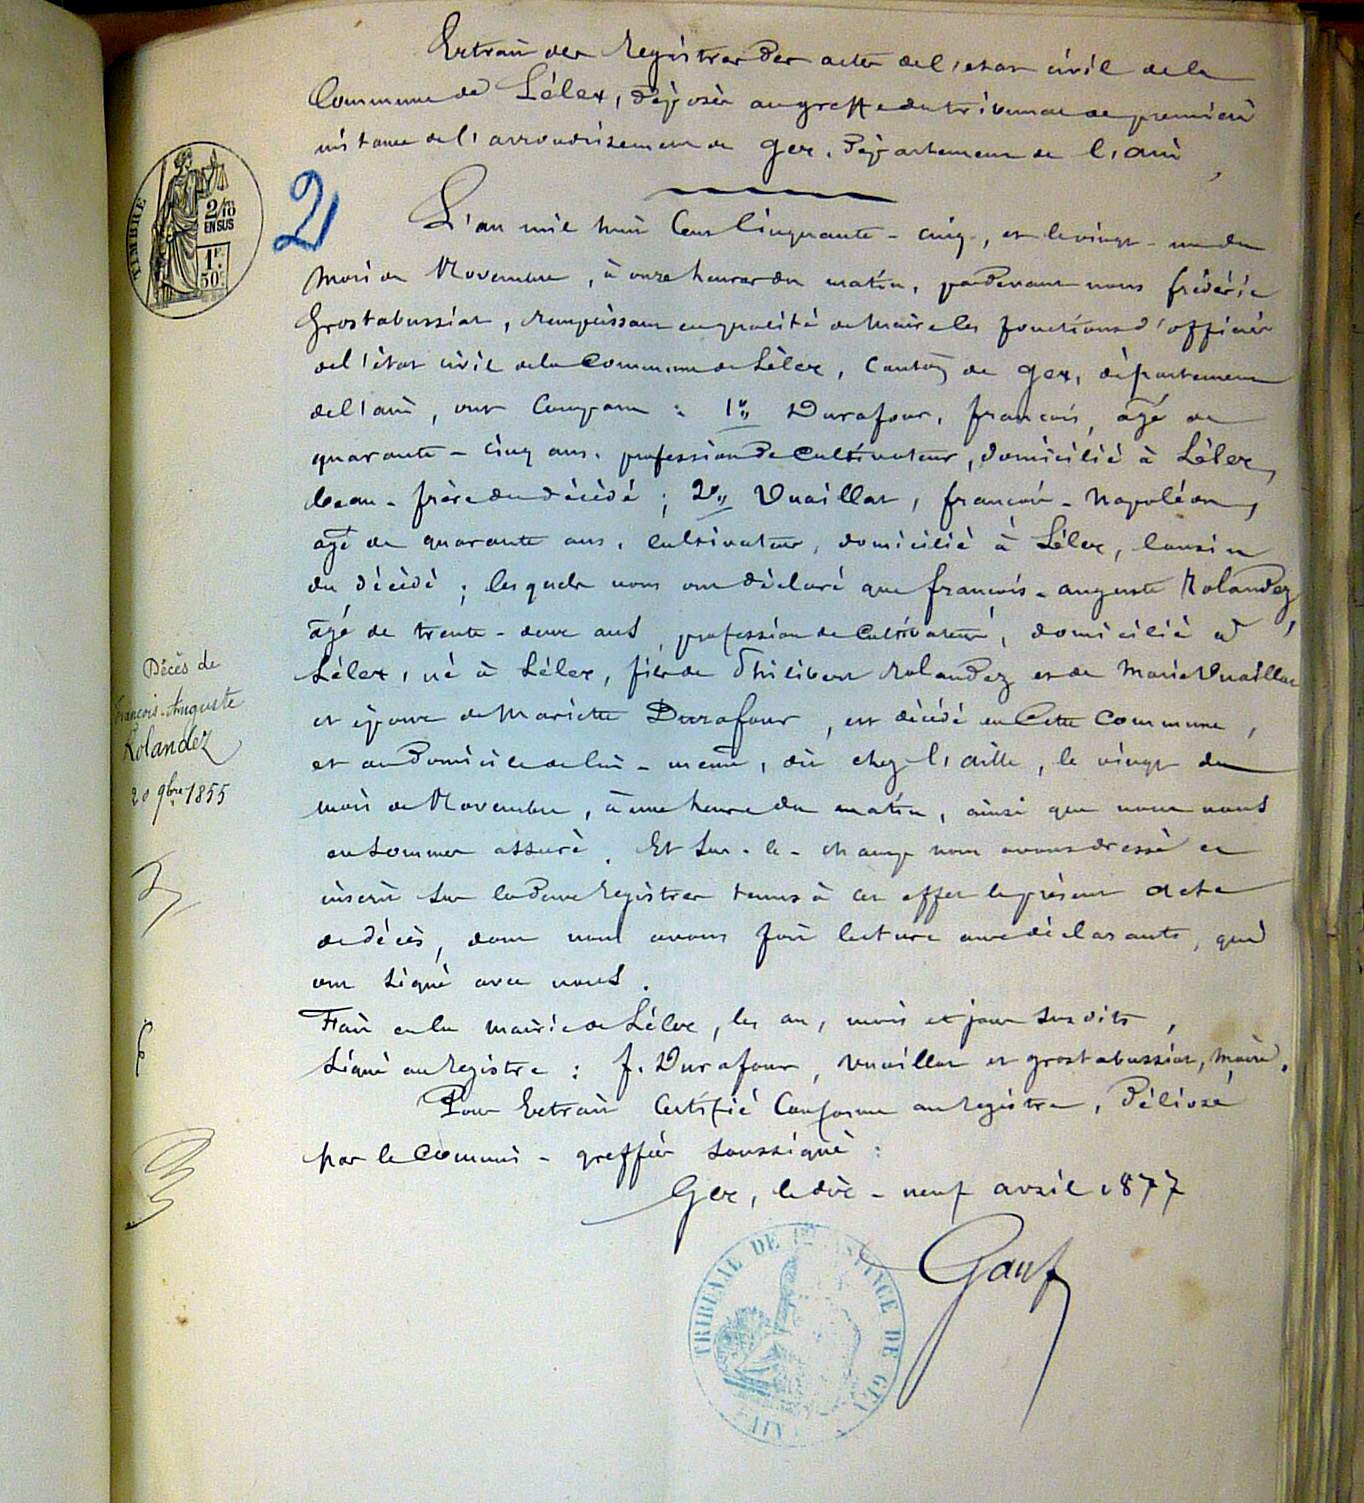 Extrait des Registres des actes de l'etat civil de la
Commune de Lélex, déposés au greffe du tribunal de première
instance de l'arrondissement de Gex, Département de l'ain
TIMBRE
2/10
EN SUS
1F.
50c.
2
L'an mil huit Cent Cinquante-cinq, et le vingt-un du
mois de Novembre, à onze heures du matin, pardevant nous frédéric
Grostabussiat, remplissant en qualité de Maire les fonctions d'officier
de l'état civil de la Commune de Lélex, Canton de Gex, département
de l'ain, ont Comparu : 1° Durafour, françois, âgé de
quarante-cinq ans, profession de Cultivateur, domicilié à Lélex,
beau-frère du décédé ; 2° Vuaillat, françois-Napoléon,
âgé de quarante ans, Cultivateur, domicilié à Lélex, Cousin
du décédé ; lesquels nous ont déclaré que françois-auguste Rolandez,
âgé de trente-deux ans, profession de Cultivateur, domicilié à
Lélex, né à Lélex, fils de Philibert Rolandez et de Marie Vuaillat
et époux de Mariette Durafour, est décédé en Cette Commune,
et au Domicile de lui-même, dit chez l', le vingt du
mois de Novembre, à une heure du matin, ainsi que nous nous
en sommes assuré. Et sur-le-champ nous avons dressé et
inscrit sur les deux Registres tenus à cet effet le présent acte
de décès, dont nous avons fait lecture aux déclarants, qui
ont signé avec nous.
Fait en la mairie de Lélex, les an, mois et jour susdits,
Signé au Registre : f. Durafour, Vuaillat et grostabussiat, Maire.
Pour Extrait Certifié Conforme au Registre, Délivré
par le Commis-greffier soussigné :
Gex, le dix-neuf avril 1877
Décès de
François-Auguste
Rolandez
20 9bre 1855
TRIBUNAL DE 1RE INSTANCE DE GEX
AIN